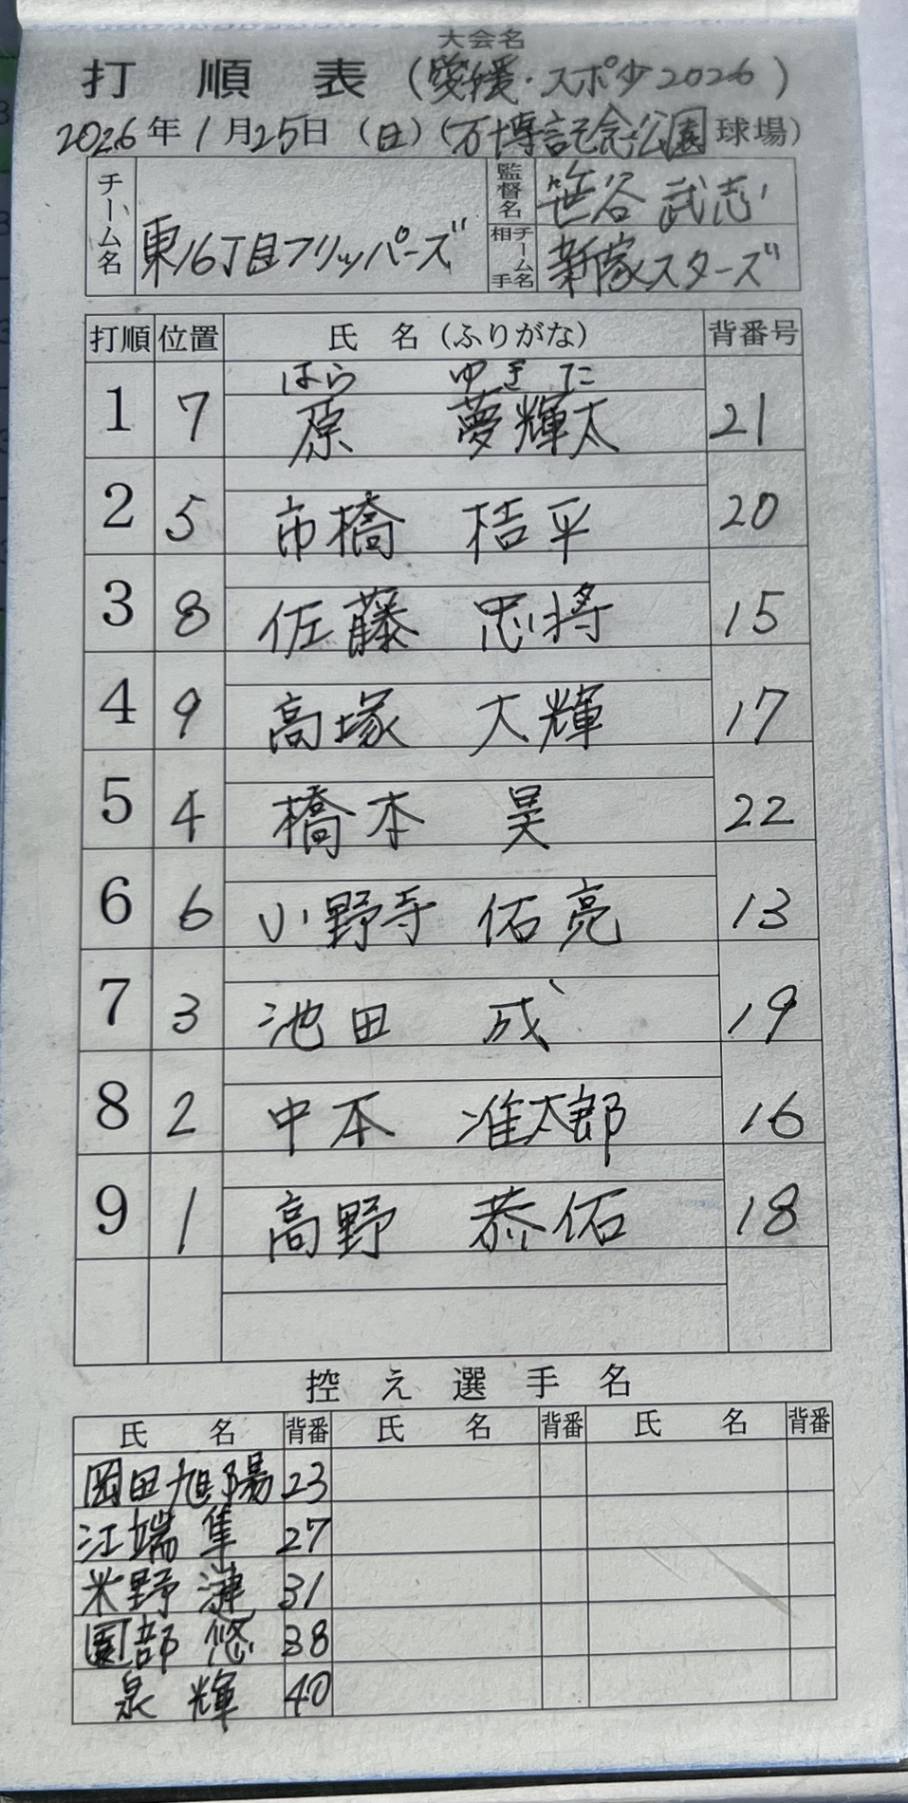 大会名
打順表（愛媛・スポ少2026）
2026年1月25日（日）（万博記念公園球場）
チーム名 東16丁目フリッパーズ 監督名 笹谷 武志
相手チーム名 新家スターズ
打順 位置 氏名（ふりがな） 背番号
はら ゆきた
1 7 原 夢輝太 21
2 5 市橋 桔平 20
3 8 佐藤 忠将 15
4 9 高塚 大輝 17
5 4 橋本 昊 22
6 6 小野寺 佑亮 13
7 3 池田 成 19
8 2 中本 准太郎 16
9 1 高野 恭佑 18
控え選手名
氏名 背番 氏名 背番 氏名 背番
岡田旭陽 23
江端 隼 27
米野 漣 31
園部 悠 38
泉 輝 40